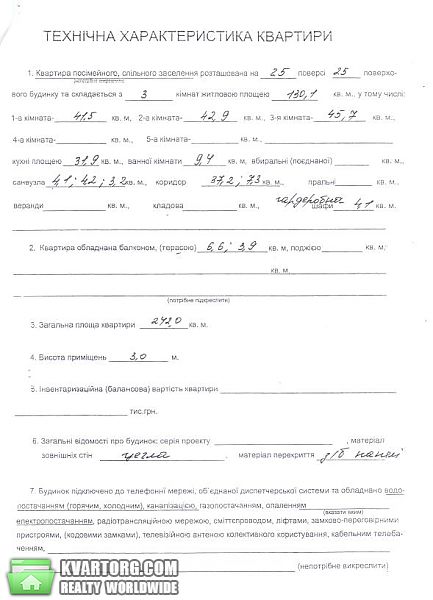 ТЕХНІЧНА ХАРАКТЕРИСТИКА КВАРТИРИ
1. Квартира посімейного, спільного заселення розташована на 25 поверсі 25 поверхо-
вого будинку та складається з 3 кімнат житловою площею 130,1 кв. м., у тому числі:
1-а кімната- 41.5 кв. м, 2-а кімната- 42,9 кв. м., 3-я кімната- 45,7 кв. м.,
4-а кімната- кв. м., 5-а кімната- кв. м.,
кухні площею 31,9 кв. м., ванної кімнати 9,4 кв. м, вбиральні (поєднаної) кв. м.,
санвузла 4,1; 4.2; 3,2 кв. м., коридор 37,2; 7,3 кв. м., пральні кв. м.,
веранди кв. м., кладова кв. м., гардеробна шафи 4,1 кв. м.
2. Квартира обладнана балконом, (терасою) 6,6; 3,9 кв. м, лоджією кв. м,
кв. м.
(потрібне підкреслити)
3. Загальна площа квартири 242,0 кв. м.
4. Висота приміщень 3,0 м.
5. Інвентаризаційна (балансова) вартість квартири
тис.грн.
6. Загальні відомості про будинок: серія проекту , матеріал
зовнішніх стін цегла , матеріал перекриття з/б панелі
7. Будинок підключено до телефонної мережі, об'єднаної диспетчерської системи та обладнано водо-
постачанням (горячим, холодним), каналізацією, газопостачанням, опаленням
(вказати яким)
електропостачанням, радіотрансляційною мережею, сміттєпроводом, ліфтами, замково-переговорними
пристроями, (кодовими замками), телевізійною антеною колективного користування, кабельним телеба-
ченням,
(непотрібне викреслити)
KVARTORG.COM
REALTY WORLDWIDE